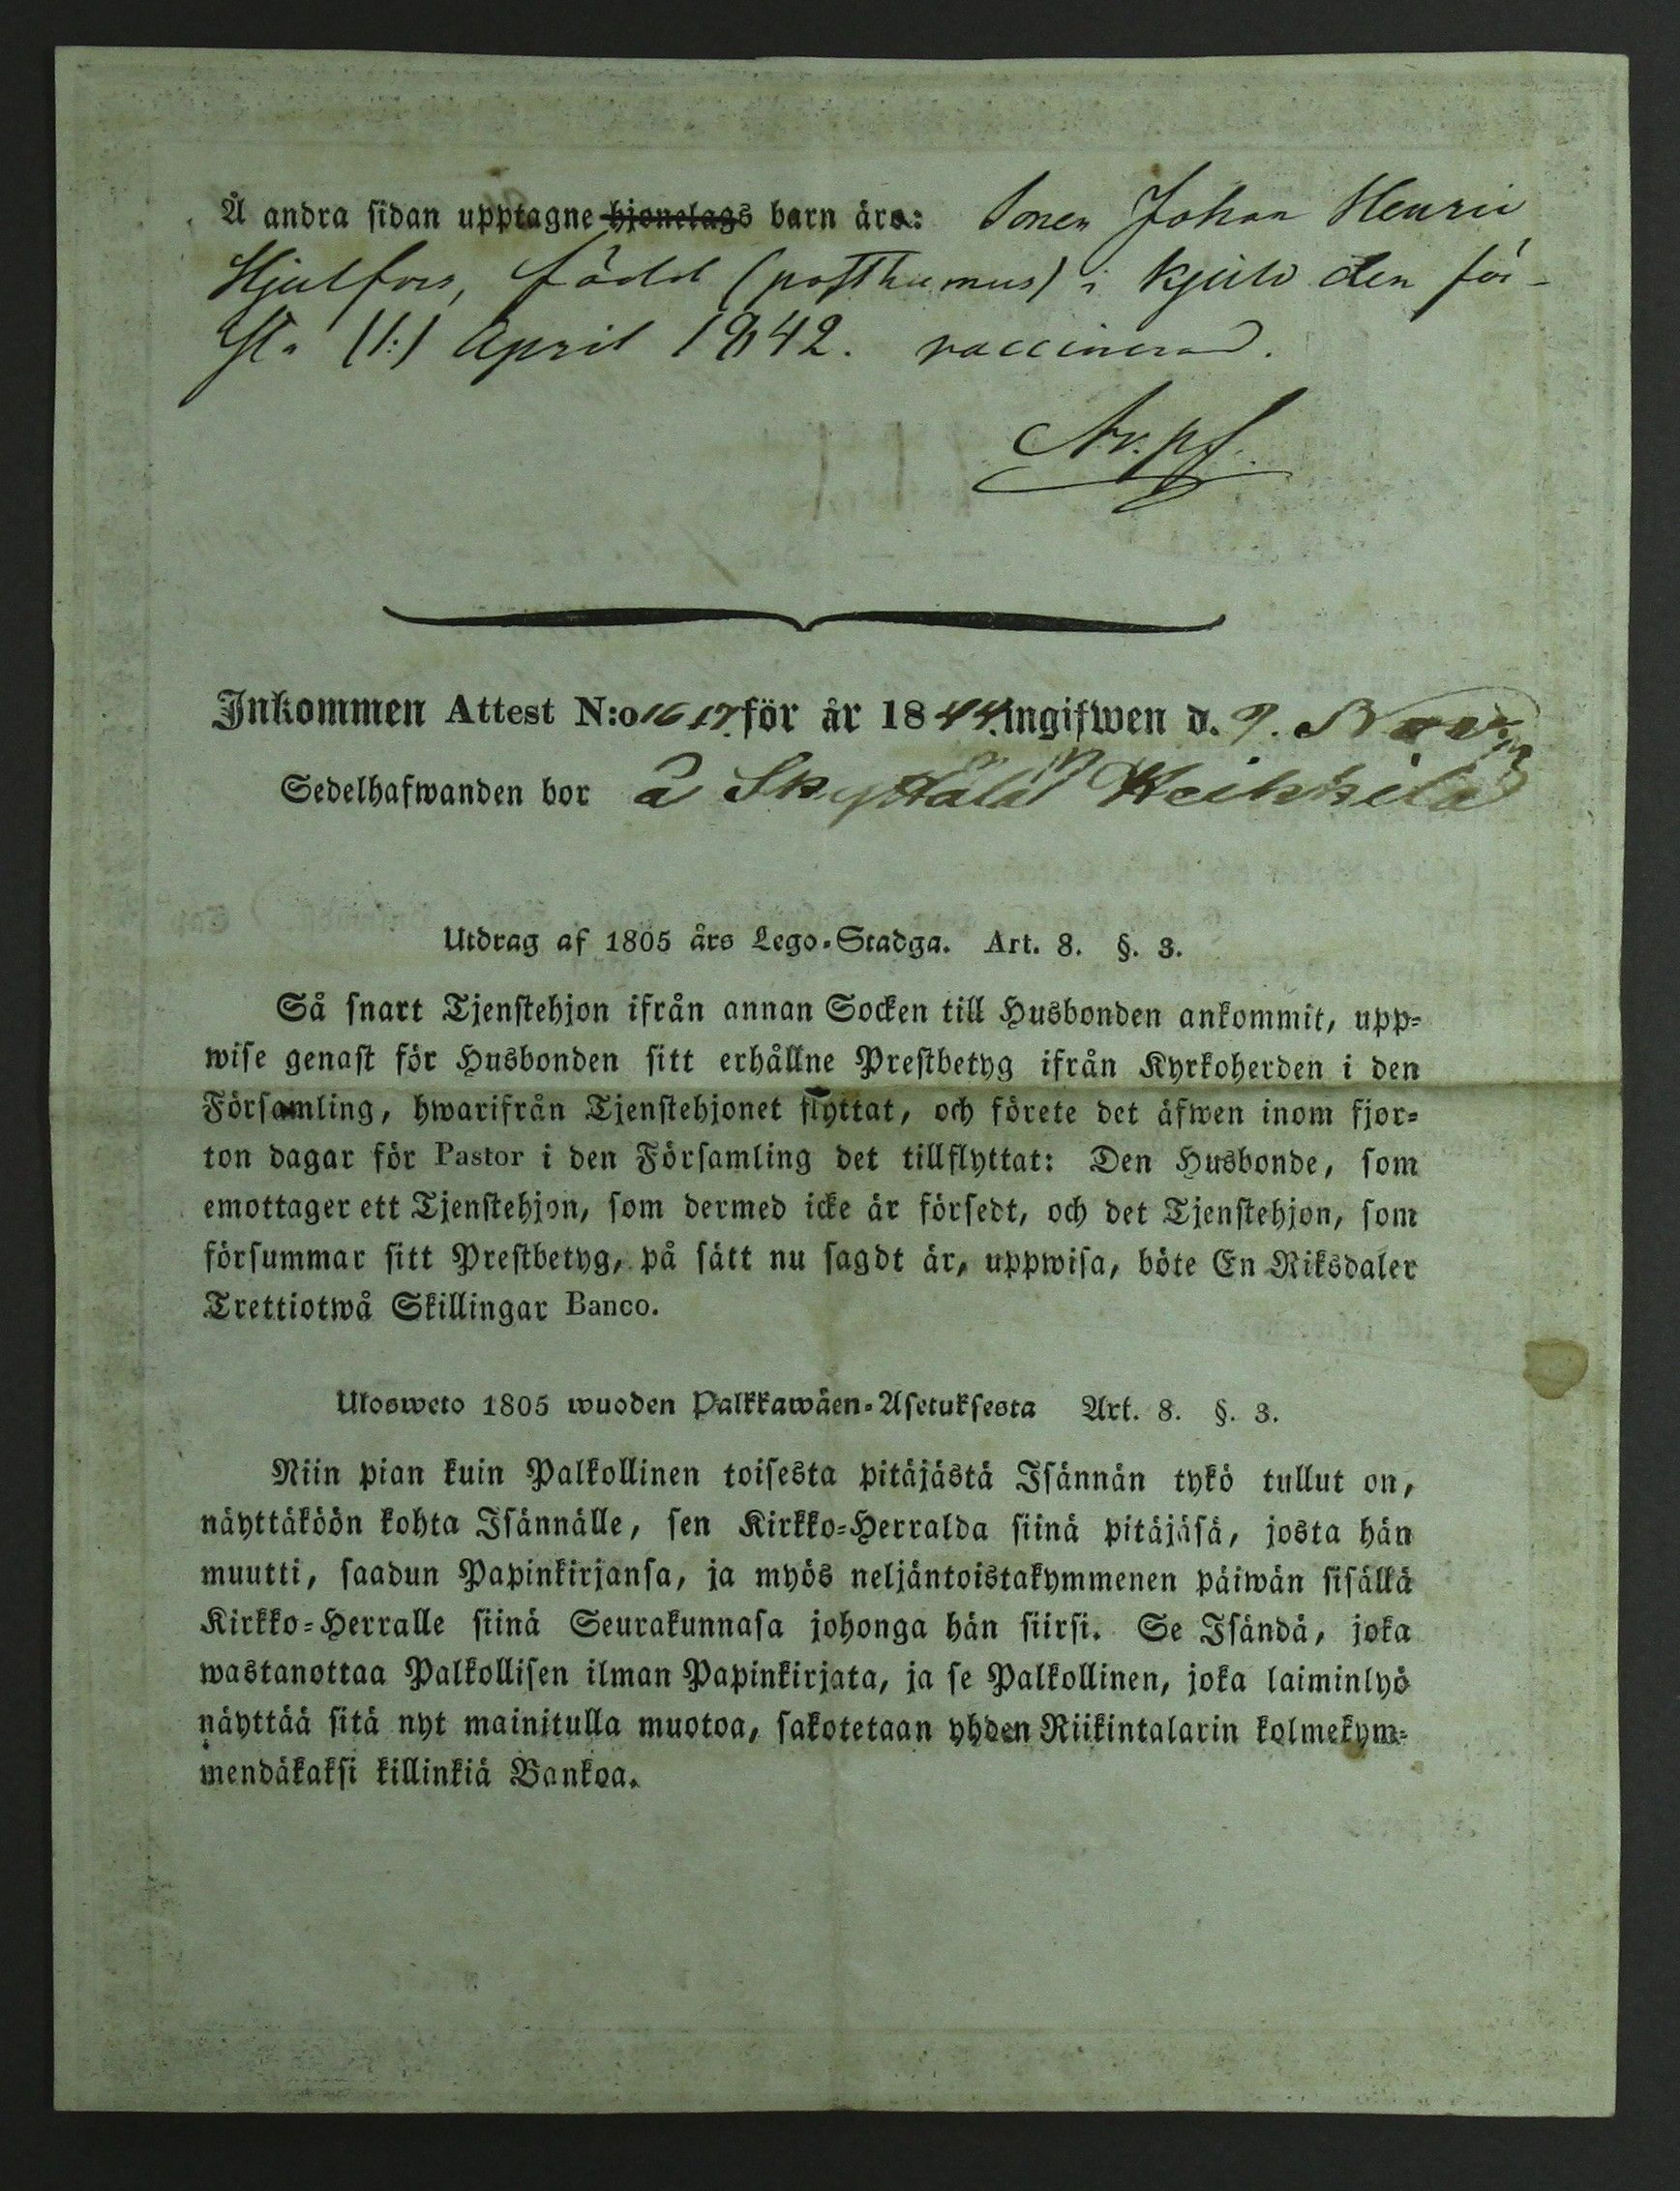 Å andra sidan upptagne hjonelags barn äro: Sonen Johan Henric
Hjulfors, född (posthumus) i Kjulo den för-
sta (1:) April 1842. vaccinerad.
Inkommen Attest N:o 16 17. för år 1844. ingifwen d. 9. Nov.
Sedelhafwanden bor å Skyttälä Heikkilä
Utdrag af 1805 års Lego-Stadga. Art. 8. §. 3.
Så snart Tjenstehjon ifrån annan Socken till Husbonden ankommit, upp-
wise genast för Husbonden sitt erhållne Prestbetyg ifrån Kyrkoherden i den
Församling, hwarifrån Tjenstehjonet flyttat, och förete det äfwen inom fjor-
ton dagar för Pastor i den Församling det tillflyttat: Den Husbonde, som
emottager ett Tjenstehjon, som dermed icke är försedt, och det Tjenstehjon, som
försummar sitt Prestbetyg, på sätt nu sagdt är, uppwisa, böte En Riksdaler
Trettiotwå Skillingar Banco.
Ulosweto 1805 wuoden Palkkawäen-Asetuksesta Art. 8. §. 3.
Niin pian kuin Palkollinen toisesta pitäjästä Isännän tykö tullut on,
näyttäköön kohta Isännälle, sen Kirkko-Herralda siinä pitäjäsä, josta hän
muutti, saadun Papinkirjansa, ja myös neljäntoistakymmenen päiwän sisällä
Kirkko-Herralle siinä Seurakunnasa johonga hän siirsi. Se Isändä, joka
wastanottaa Palkollisen ilman Papinkirjata, ja se Palkollinen, joka laiminlyö
näyttää sitä nyt mainitulla muotoa, sakotetaan yhden Riikintalarin kolmekym-
mendäkaksi killinkiä Bankoa.